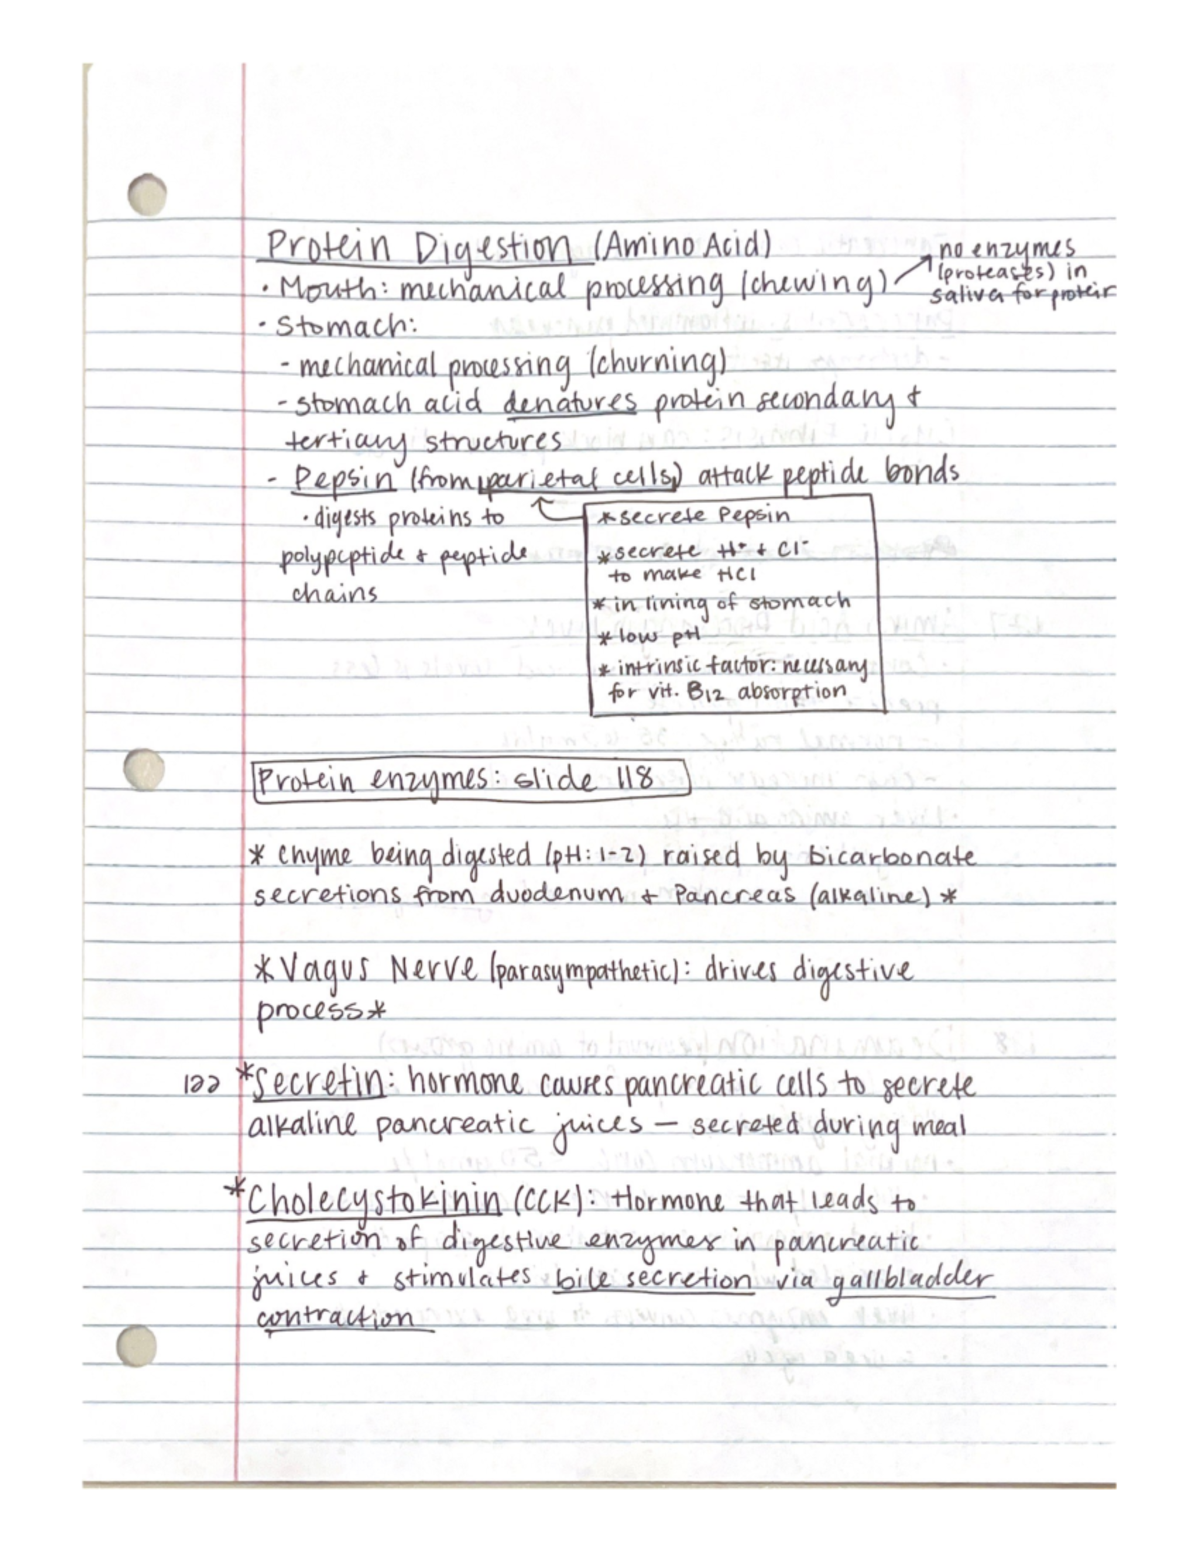 Protein Digestion (Amino Acid)
no enzymes
(proteases) in
saliva for protein
• Mouth: mechanical processing (chewing)
• Stomach:
- mechanical processing (churning)
- stomach acid denatures protein secondary &
tertiary structures
- Pepsin (from parietal cells) attack peptide bonds
• digests proteins to
polypeptide & peptide
chains
* secrete Pepsin
* secrete H+ + Cl-
to make HCl
* in lining of stomach
* low pH
* intrinsic factor: necessary
for vit. B12 absorption
Protein enzymes: slide 118
* Chyme being digested (pH: 1-2) raised by bicarbonate
secretions from duodenum & Pancreas (alkaline) *
* Vagus Nerve (parasympathetic): drives digestive
process *
122 * Secretin: hormone causes pancreatic cells to secrete
alkaline pancreatic juices — secreted during meal
* Cholecystokinin (CCK): Hormone that leads to
secretion of digestive enzymes in pancreatic
juices & stimulates bile secretion via gallbladder
contraction